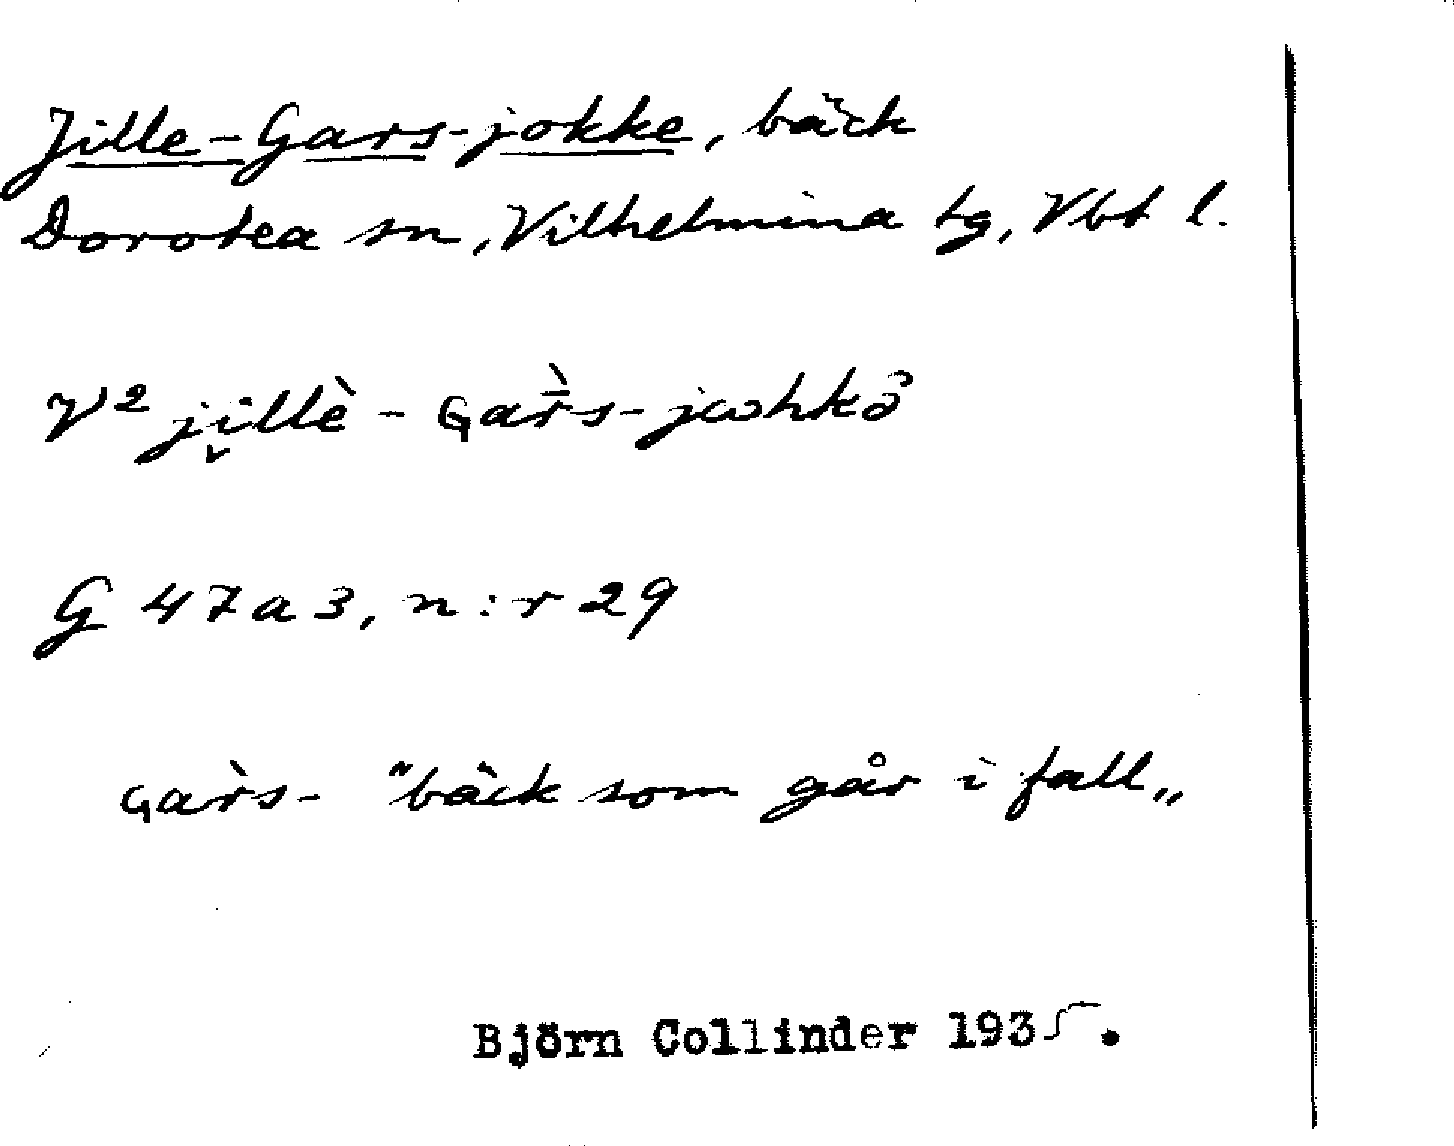 Jille-Gars-jokke, bäck
Dorotea sn, Vilhelmina tg, Vbt l.
V² ji̬llè - Gar̄̀s-jωhkə̑
G 47a3, n:r 29
Gar̀s- "bäck som går i fall„
Björn Collinder 1935.